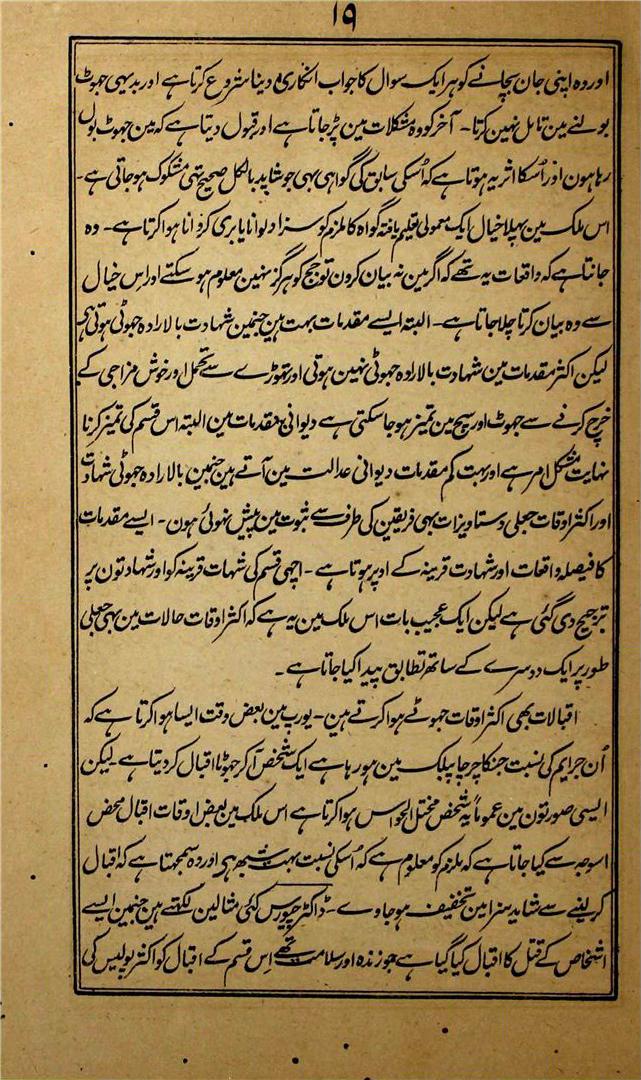 ۱۹
اور وہ اپنی جان بچانے کو ہر ایک سوال کا جواب انکاری دینا شروع کرتا ہے اور بدیہی جھوٹ
بولنے مین تامل نہین کرتا۔ آخر کو وہ مشکلات مین پڑ جاتا ہے اور قبول دیتا ہے کہ مین جھوٹ بول
رہا ہون اور اُسکا اثر یہ ہوتا ہے کہ اُسکی سابق کی گواہی بہی جو شاید بالکل صحیح تہی مشکوک ہو جاتی ہے۔
اس ملک مین پہلا خیال ایک معمولی تعلیم یافتہ گواہ کا ملزم کو سزا دیوانا یا بری کروانا ہوا کرتا ہے۔ وہ
جانتا ہے کہ واقعات یہ تھے کہ اگر مین نہ بیان کرون تو جج کو ہرگز نہین معلوم ہو سکتے اور اس خیال
سے وہ بیان کرتا چلا جاتا ہے۔ البتہ ایسے مقدمات بہت ہین جنمین شہادت بالارادہ جھوٹی ہوتی ہی
لیکن اکثر مقدمات مین شہادت بالارادہ جھوٹی نہین ہوتی اور تھوڑے سے تحمل اور خوش مزاجی کے
خرچ کرنے سے جھوٹ اور سچ مین تمیز ہو جا سکتی ہے دیوانی مقدمات مین البتہ اس قسم کی تمیز کرنا
نہایت مشکل امر ہے اور بہت کم مقدمات دیوانی عدالت مین آتے ہین جنمین بالارادہ جھوٹی شہادت
اور اکثر اوقات جعلی دستاویزات بہی فریقین کی طرف سے ثبوت مین پیش نہوئی ہون۔ ایسے مقدمات
کا فیصلہ واقعات اور شہادت قرینہ کے اوپر ہوتا ہے۔ اچھی قسم کی شہات قرینہ کو اور شہادتون پر
ترجیح دی گئی ہے لیکن ایک عجیب بات اس ملک مین یہ ہے کہ اکثر اوقات حالات مین بہی جعلی
طور پر ایک دوسرے کے ساتھ تطابق پیدا کیا جاتا ہے۔
اقبالات بھی اکثر اوقات جھوٹے ہوا کرتے ہین۔ یورپ مین بعض وقت ایسا ہوا کرتا ہے کہ
اُن جرایم کی نسبت جنکا چرچا پبلک مین ہو رہا ہے ایک شخص آ کر جھوٹا اقبال کر دیتا ہے۔ لیکن
ایسی صورتون مین عموماً یہ شخص مختل الحواس ہوا کرتا ہے اس ملک مین بعض اوقات اقبال محض
اسوجہ سے کیا جاتا ہے کہ ملزم کو معلوم ہے کہ اُسکی نسبت بہت شبہ ہی اور وہ سمجھتا ہے کہ اقبال
کر لینے سے شاید سزا مین تخفیف ہو جاوے۔ ڈاکٹر چیورس کئی مثالین لکھتے ہین جنمین ایسے
اشخاص کے قتل کا اقبال کیا گیا ہے جو زندہ اور سلامت تھے اِس قسم کے اقبال کو اکثر پولیس کی